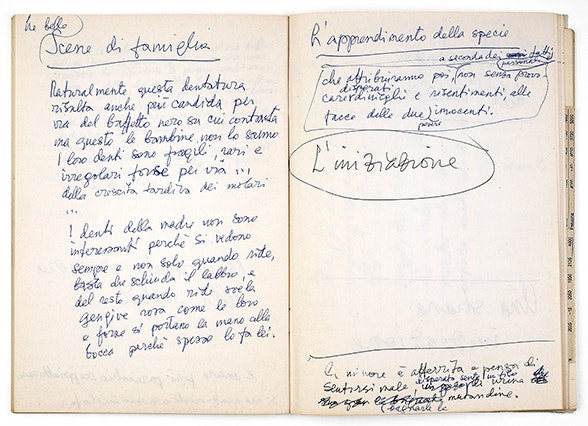 tre belle
Scene di famiglia
Naturalmente questa dentatura
risulta anche più candida per
via del baffetto nero su cui contrasta
ma questo le bambine non lo sanno
I loro denti sono fragili, rari e
irregolari forse per via ...
della crescita tardiva dei molari
...
I denti della madre non sono
interessanti perchè si vedono
sempre e non solo quando ride,
basta che schiuda il labbro, e
del resto quando ride svela
gengive rosa come le loro
e forse si portano la mano alla
bocca perchè spesso lo fa lei.
L'apprendimento della specie
a seconda dei fatti
personali
(che attribuiranno poi, non senza provo-
disperati
care dinieghi e risentimenti, alle
facce delle due) innocenti.
povere
L'iniziazione
La minore è atterrita e pensa di
sentirsi male
di urina
mutandine.
(bagnarle le